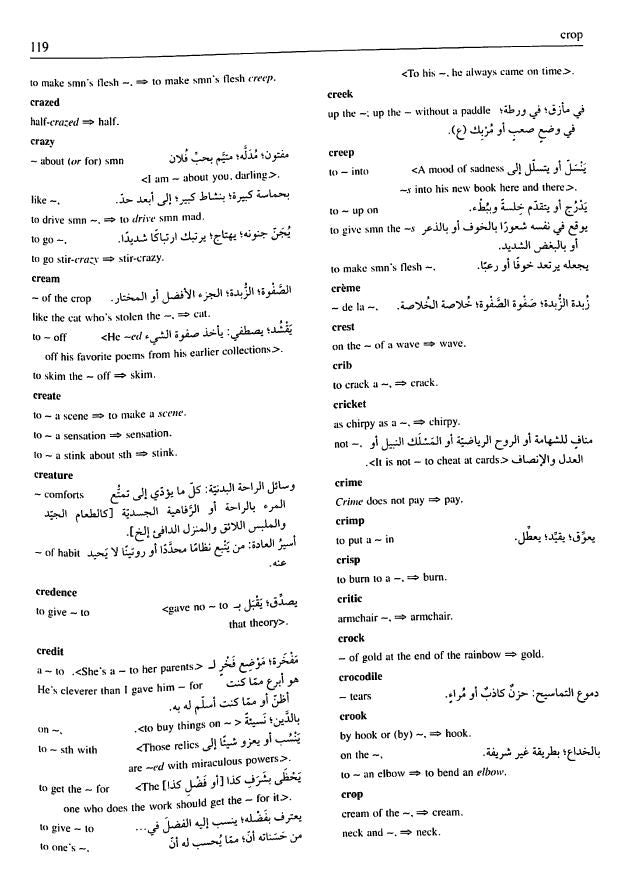 119
crop
to make smn's flesh ~, ⇒ to make smn's flesh creep.
crazed
half-crazed ⇒ half.
crazy
~ about (or for) smn مفتون؛ مُدَلَّه؛ متيَّم بحبّ فُلان
<I am ~ about you, darling.>
like ~, بحماسة كبيرة؛ بنشاط كبير؛ إلى أبعد حدّ.
to drive smn ~, ⇒ to drive smn mad.
to go ~, يُجَنّ جنونه؛ يهتاج؛ يرتبك ارتباكًا شديدًا.
to go stir-crazy ⇒ stir-crazy.
cream
~ of the crop الصَّفْوة؛ الزُّبدة؛ الجزء الأفضل أو المختار.
like the cat who's stolen the ~, ⇒ cat.
to ~ off يَقْشُد؛ يصطفي: يأخذ صفوة الشيء <He ~ed
off his favorite poems from his earlier collections>.
to skim the ~ off ⇒ skim.
create
to ~ a scene ⇒ to make a scene.
to ~ a sensation ⇒ sensation.
to ~ a stink about sth ⇒ stink.
creature
~ comforts وسائل الراحة البدنيّة: كلّ ما يؤدّي إلى تمتُّع
المرء بالراحة أو الرَّفاهية الجسديّة [كالطعام الجيّد
والملبس اللائق والمنزل الدافئ إلخ].
~ of habit أسيرُ العادة: من يَتْبع نظامًا محدَّدًا أو روتينًا لا يَحيد
عنه.
credence
to give ~ to يصدِّق؛ يَقْبَل بـ <gave no ~ to
that theory>.
credit
a ~ to مَفْخَرة؛ مَوْضِع فَخْرٍ لـ <She's a ~ to her parents>.
He's cleverer than I gave him ~ for هو أبرع ممّا كنت
أظنّ أو ممّا كنت أسلّم له به.
on ~, بالدَّين؛ نَسيئةً <to buy things on ~>.
to ~ sth with يَنْسُب أو يعزو شيئًا إلى <Those relics
are ~ed with miraculous powers>.
to get the ~ for يَحْظَى بشَرَف كذا [أو فَضْل كذا] <The
one who does the work should get the ~ for it>.
to give ~ to يعترف بفَضْله؛ ينسب إليه الفضلَ في...
to one's ~, من حَسَناته أن؛ ممّا يُحسب له أنّ
<To his ~, he always came on time.>.
creek
up the ~; up the ~ without a paddle في مأزق؛ في ورطة؛
في وضعٍ صعبٍ أو مُرْبِك (ع).
creep
to ~ into يَنْسَلّ أو يتسلّل إلى <A mood of sadness
~s into his new book here and there>.
to ~ up on يَدْرُج أو يتقدّم خِلسةً وببُطْء.
to give smn the ~s يوقع في نفسه شعورًا بالخوف أو بالذعر
أو بالبغض الشديد.
to make smn's flesh ~, يجعله يرتعد خوفًا أو رعبًا.
crème
~ de la ~, زُبدة الزُّبدة؛ صَفْوة الصَّفْوة؛ خُلاصة الخُلاصة.
crest
on the ~ of a wave ⇒ wave.
crib
to crack a ~, ⇒ crack.
cricket
as chirpy as a ~, ⇒ chirpy.
not ~, منافٍ للشهامة أو الروح الرياضيّة أو المَسْلَك النبيل أو
العدل والإنصاف <It is not ~ to cheat at cards>.
crime
Crime does not pay ⇒ pay.
crimp
to put a ~ in يعوِّق؛ يقيِّد؛ يعطِّل.
crisp
to burn to a ~, ⇒ burn.
critic
armchair ~, ⇒ armchair.
crock
~ of gold at the end of the rainbow ⇒ gold.
crocodile
~ tears دموع التماسيح: حزنٌ كاذبٌ أو مُراءٍ.
crook
by hook or (by) ~, ⇒ hook.
on the ~, بالخداع؛ بطريقة غير شريفة.
to ~ an elbow ⇒ to bend an elbow.
crop
cream of the ~, ⇒ cream.
neck and ~, ⇒ neck.